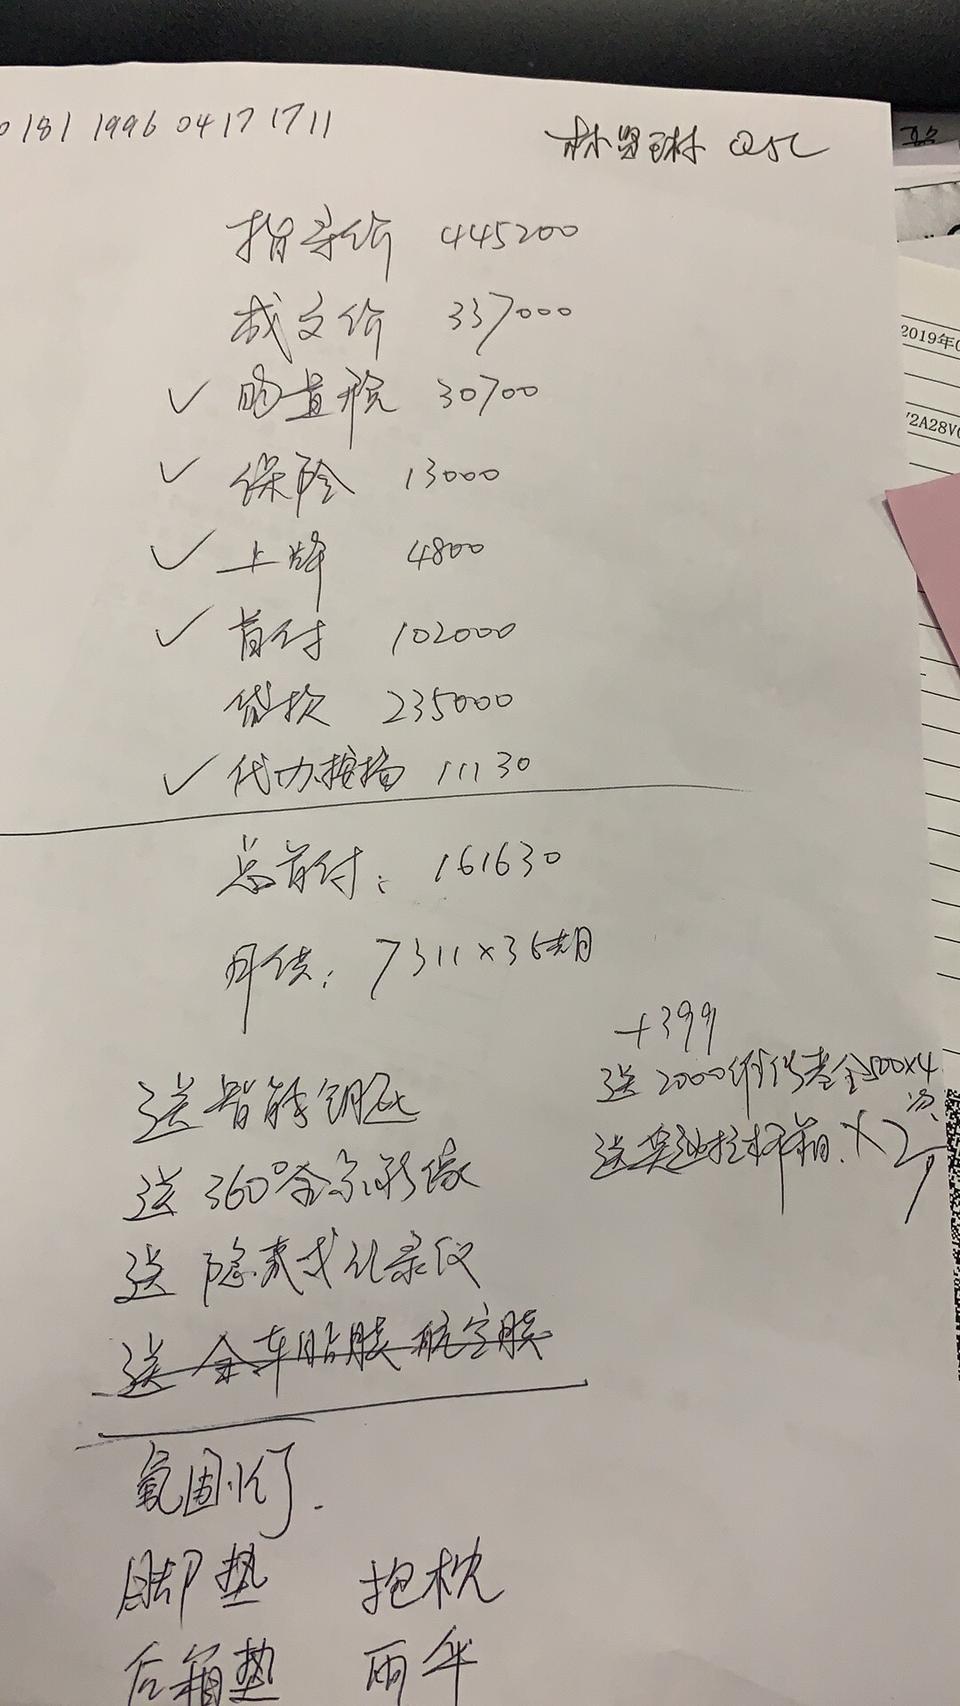 0181 1996 0417 1711
林 Q5L
指导价 445200
成交价 337000
✓ 购置税 30700
✓ 保险 13000
✓ 上牌 4800
✓ 首付 102000
贷款 235000
✓ 代办按揭 11130
总首付: 161630
月供: 7311×36期
+399
送 2000 基金 500×4次
送奥迪拉杆箱. ×2个
送智能钥匙
送 360°全景影像
送 隐藏式记录仪
送 全车贴膜 航空膜
氛围灯.
脚垫 抱枕
后箱垫 雨伞
2019年0
72A28V